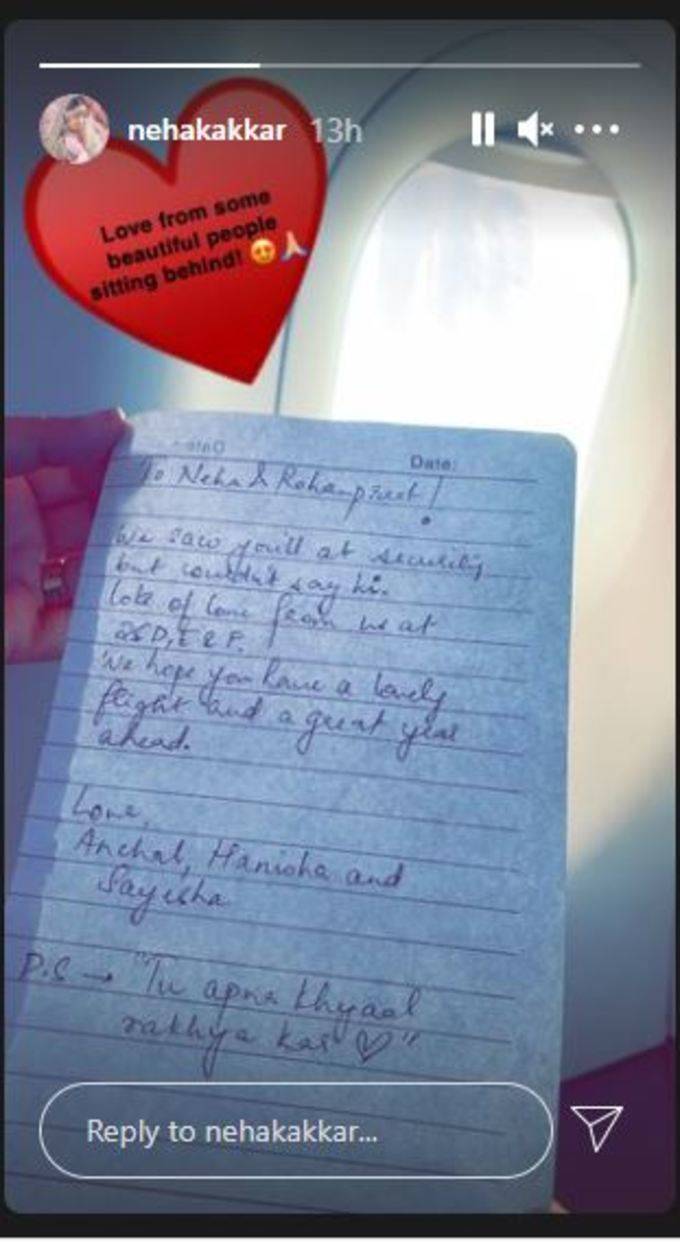 nehakakkar 13h
Love from some
beautiful people
sitting behind! 😍🙏
Date:
To Neha & Rohanpreet!
We saw you'll at security
but couldn't say hi.
Lots of love from us at
25D, E & F.
We hope you have a lovely
flight and a great year
ahead.
Love,
Anchal, Hanisha and
Sayesha
P.S → "Tu apna khyaal
rakhya kar ♡"
Reply to nehakakkar...